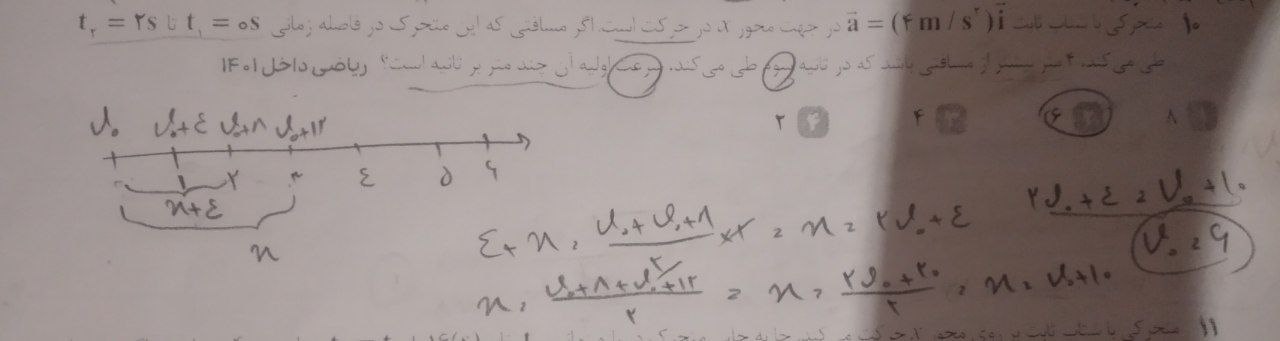 ۱۰ متحرکی با شتاب ثابت a = (۴ m/s^۲) i در جهت محور x در حرکت است. اگر مسافتی که این متحرک در فاصله زمانی t_۱ = ۰s تا t_۲ = ۲s
طی می‌کند، ۴ متر بیشتر از مسافتی باشد که در ثانیه سوم طی می‌کند، سرعت اولیه آن چند متر بر ثانیه است؟ ریاضی داخل ۱۴۰۱
۱ ۸ ۲ ۶ ۳ ۴ ۴ ۲
v₀ v₀+٤ v₀+۸ v₀+۱۲
۱ ۲ ۳ ٤ ۵ ۶
x+٤
x
٤+x = (v₀+v₀+۸)/۲ ×۲ = x = ۲v₀+٤
۲v₀+٤ = v₀+۱۰
x = (v₀+۸+v₀+۱۲)/۲ = x = (۲v₀+۲۰)/۲ = x = v₀+۱۰
v₀ = ۶
۱۱ متحرکی با شتاب ثابت بر روی محور x حرکت می‌کند